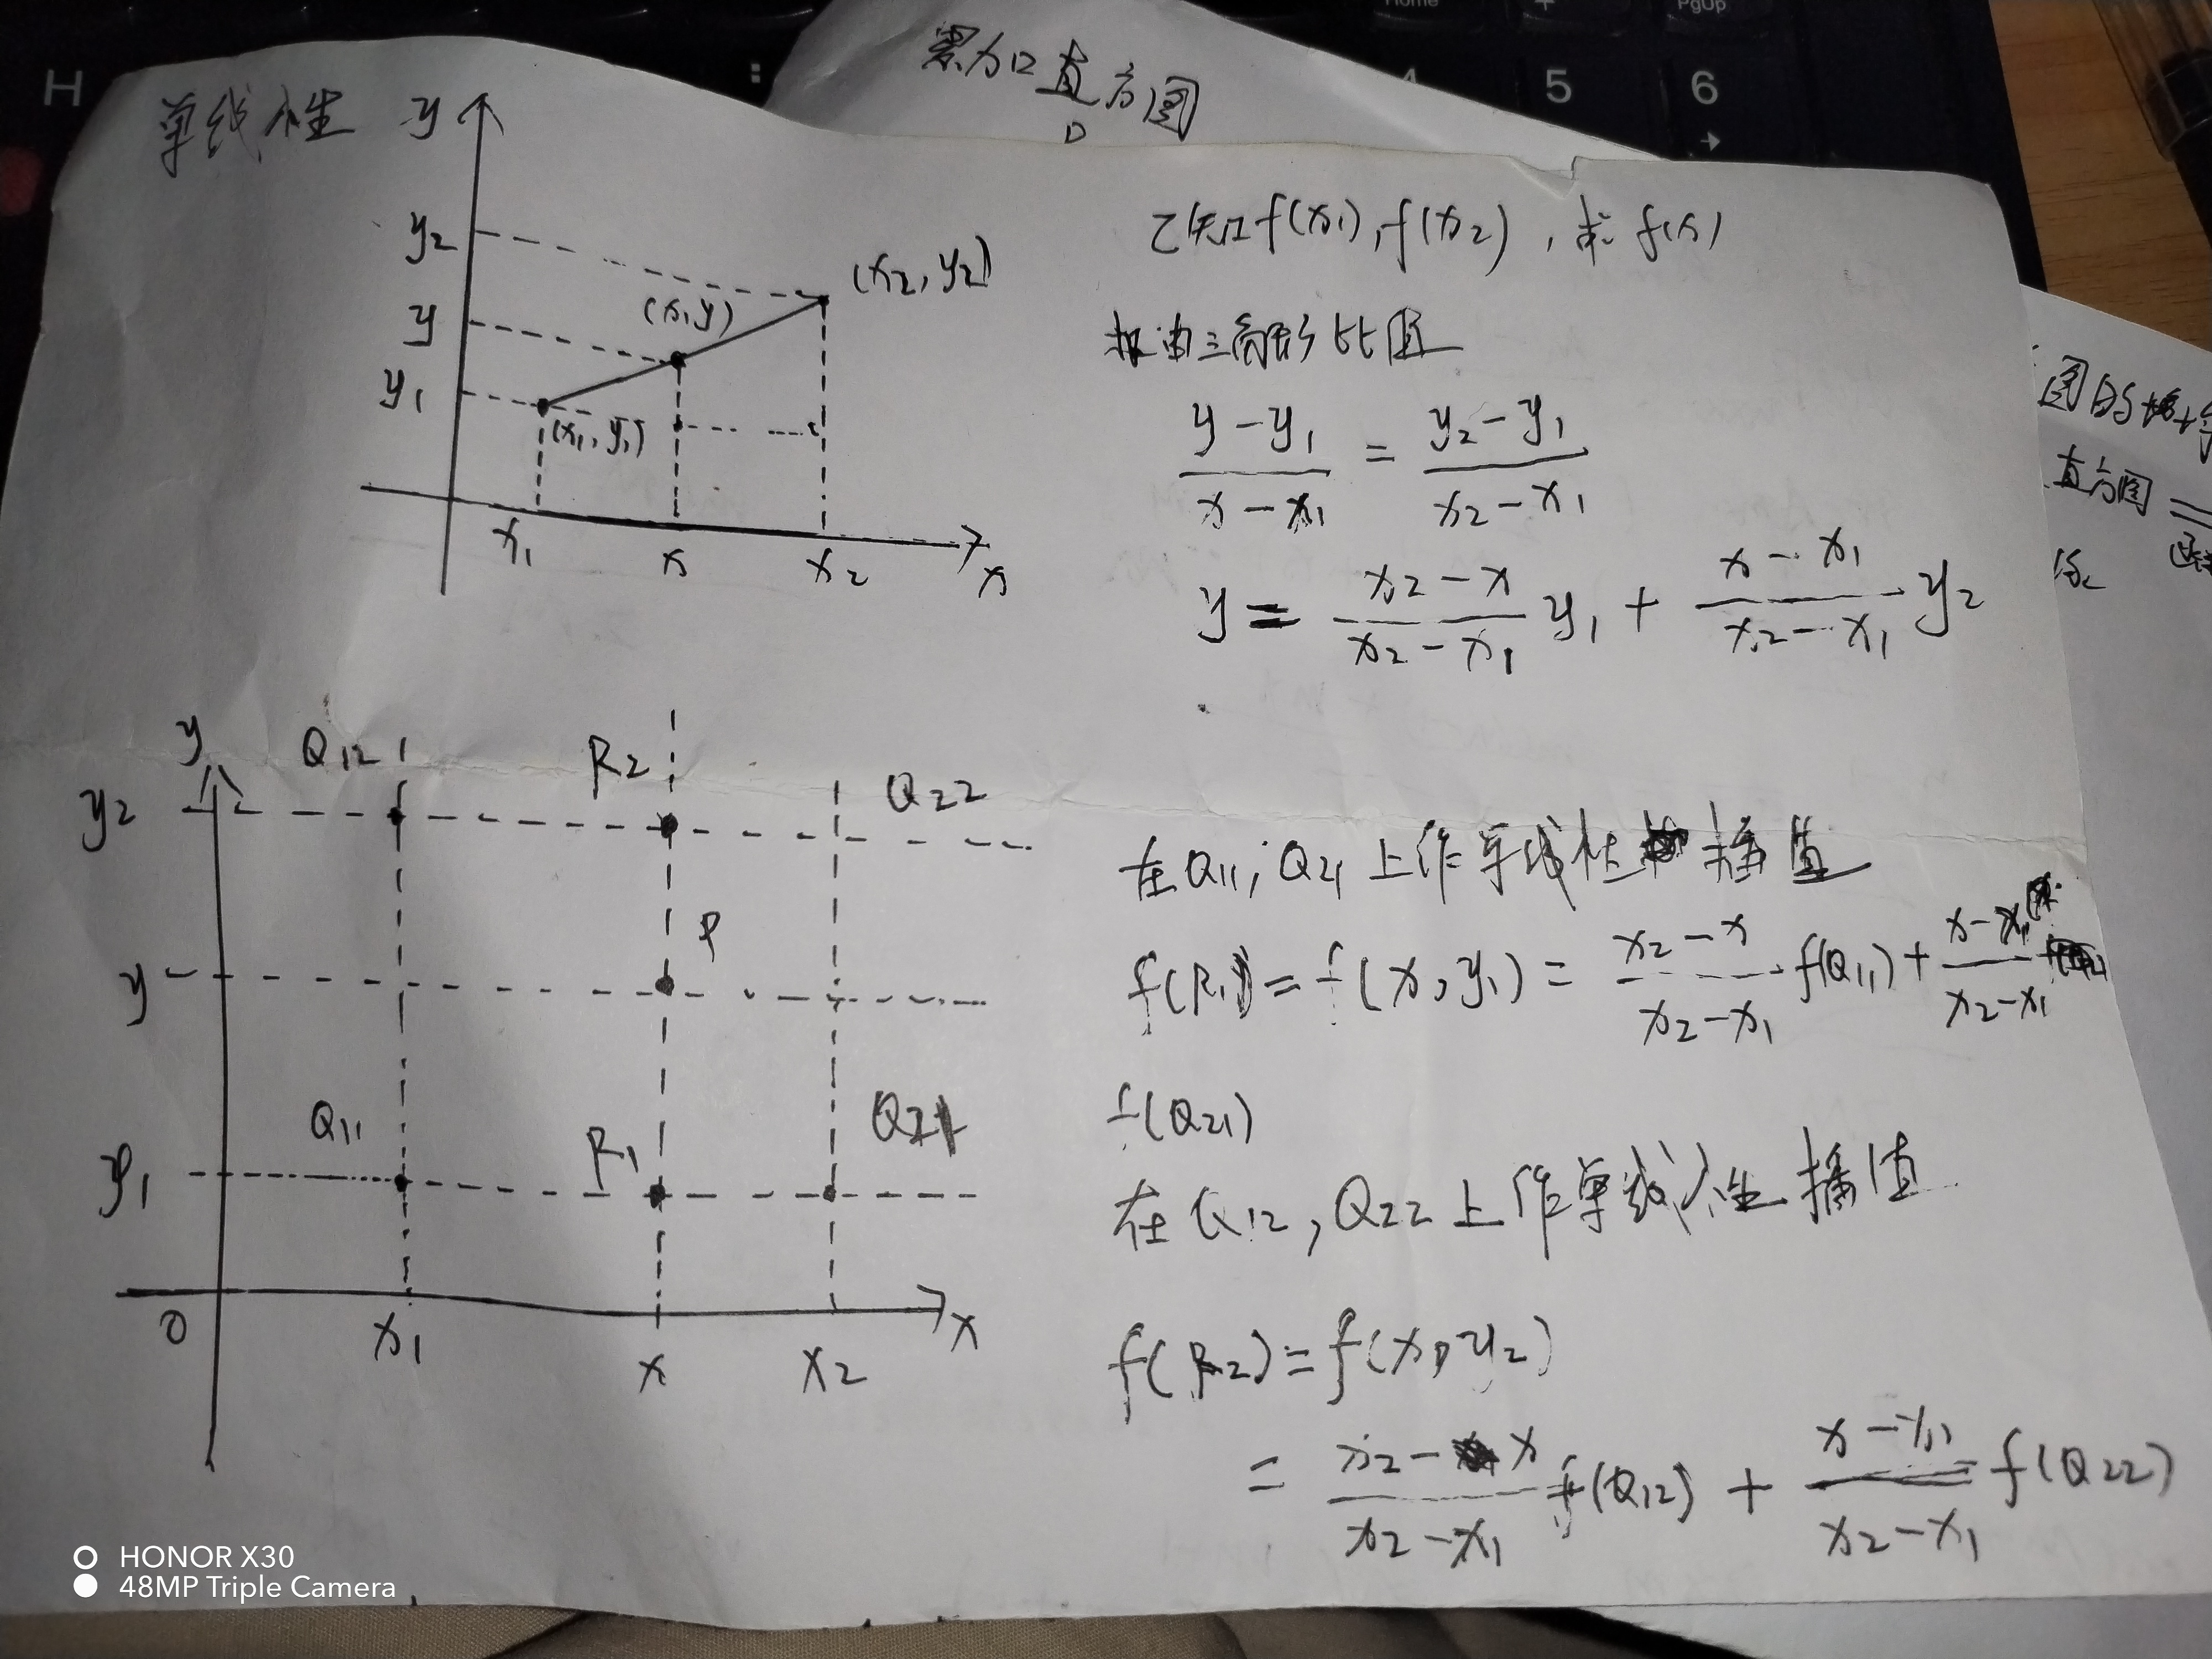 H
Home
+
PgUp
5
6
累加直方图
单线性
y
y2
y
y1
(x2, y2)
(x,y)
(x1, y1)
x1
x
x2
x
已知f(x1), f(x2), 求f(x)
三角形比值
y-y1 / x-x1 = y2-y1 / x2-x1
y = x2-x / x2-x1 y1 + x-x1 / x2-x1 y2
图的
直方图 =
y
Q12
R2
Q22
y2
P
y
Q11
R1
Q21
y1
0
x1
x
x2
x
在Q11, Q21上作单线性插值
f(R1) = f(x, y1) = x2-x / x2-x1 f(Q11) + x-x1 / x2-x1
f(Q21)
在Q12, Q22上作单线性插值
f(R2) = f(x, y2)
= x2-x / x2-x1 f(Q12) + x-x1 / x2-x1 f(Q22)
HONOR X30
48MP Triple Camera